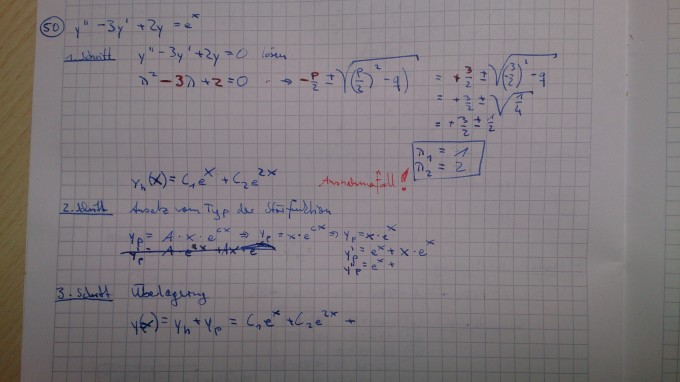 50 y'' - 3y' + 2y = e^x
1. Schritt y'' - 3y' + 2y = 0 lösen
λ² - 3λ + 2 = 0 → -p/2 ± √((p/2)² - q) = +3/2 ± √((3/2)² - q)
= +3/2 ± √(1/4)
= +3/2 ± 1/2
λ₁ = 1
λ₂ = 2
y_h(x) = C₁e^x + C₂e^2x Ausnahmefall!
2. Schritt Ansatz vom Typ der Störfunktion
y_p = A · x · e^cx ⇒ y_p = x · e^cx ⇒ y_p = x · e^x
y_p' = e^x + x · e^x
y_p'' = e^x +
3. Schritt Überlagerung
y(x) = y_h + y_p = C₁e^x + C₂e^2x +